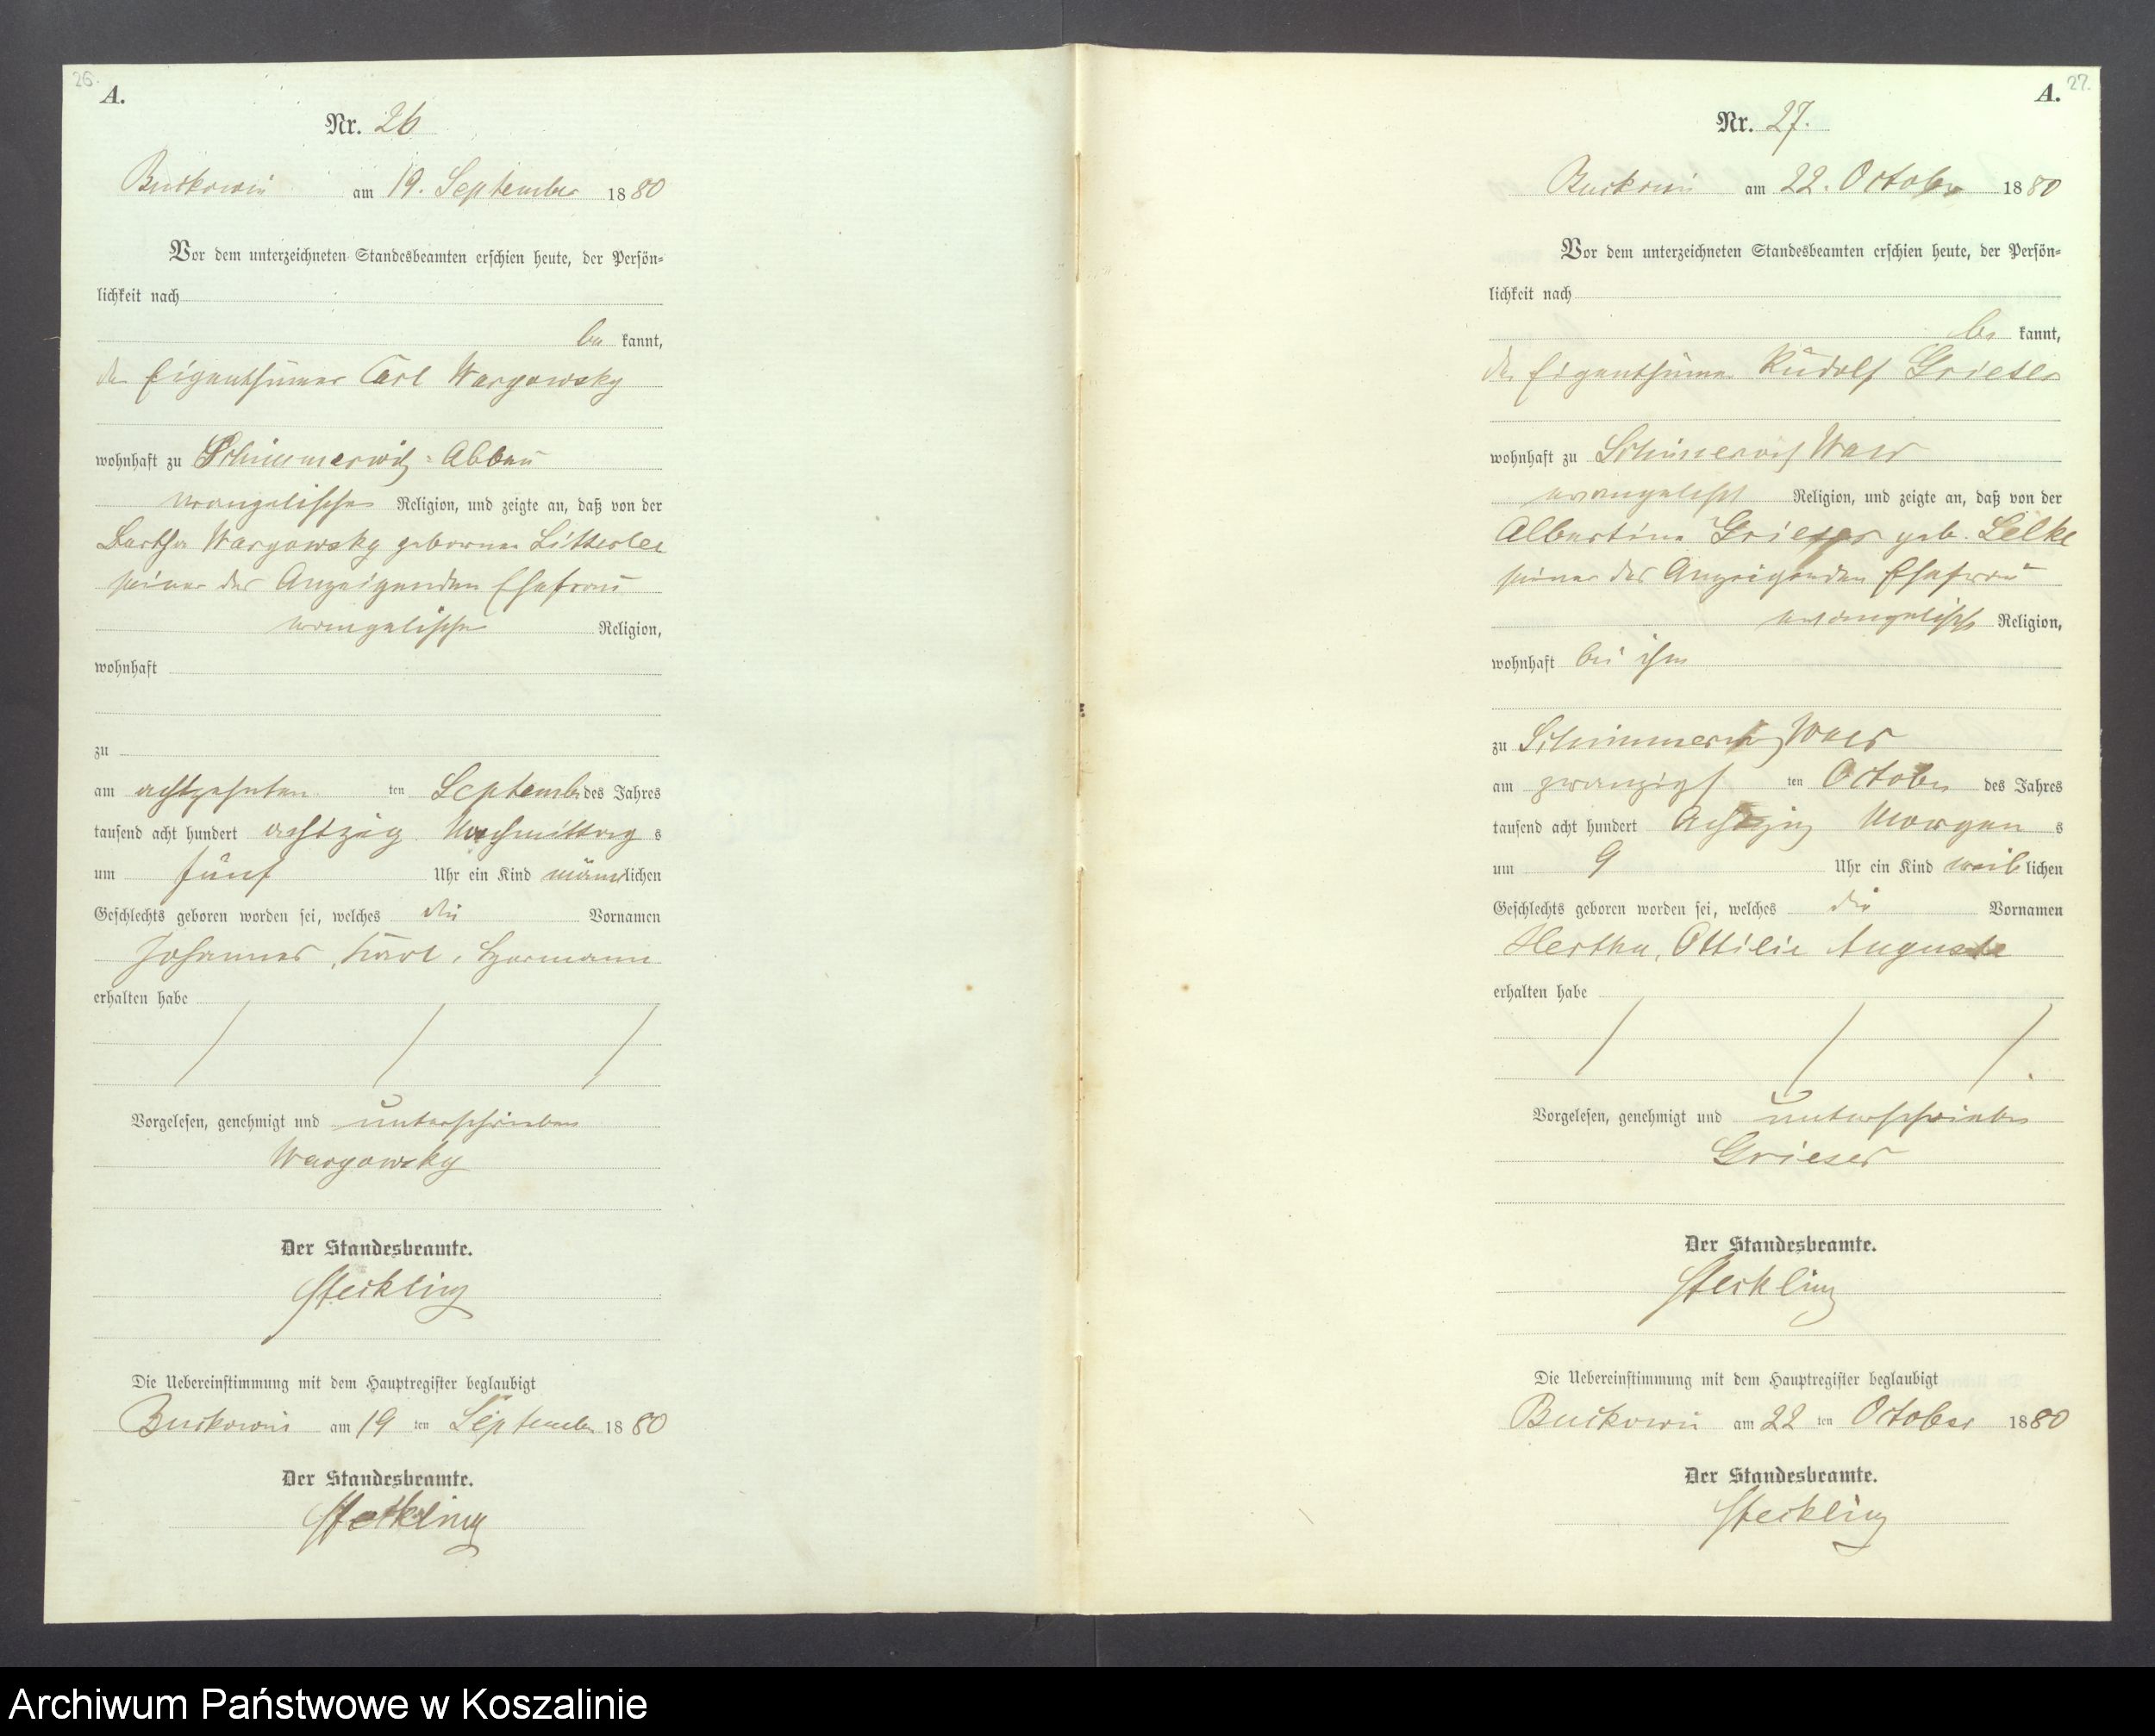 26.
A.
Nr. 26
Buckowin am 19. September 1880
Vor dem unterzeichneten Standesbeamten erschien heute, der Persön-
lichkeit nach
be kannt,
der Eigenthümer Carl Wargowsky
wohnhaft zu Schimmerwitz-Abbau
evangelischer Religion, und zeigte an, daß von der
Bertha Wargowsky geborenen
seiner des Anzeigenden Ehefrau
evangelischer Religion,
wohnhaft
zu
am achtzehnten ten September des Jahres
tausend acht hundert achtzig Nachmittag s
um fünf Uhr ein Kind männlichen
Geschlechts geboren worden sei, welches die Vornamen
Johannes, Karl, Hermann
erhalten habe
Vorgelesen, genehmigt und unterschrieben
Wargowsky
Der Standesbeamte.
Steckling
Die Uebereinstimmung mit dem Hauptregister beglaubigt
Buckowin am 19 ten September 1880
Der Standesbeamte.
Steckling
27.
A.
Nr. 27.
Buckowin am 22. October 1880
Vor dem unterzeichneten Standesbeamten erschien heute, der Persön-
lichkeit nach
be kannt,
der Eigenthümer Rudolf Grieser
wohnhaft zu
evangelisch Religion, und zeigte an, daß von der
Albertine Grieser geb. Selke
seiner des Anzeigenden Ehefrau
evangelisch Religion,
wohnhaft bei ihm
zu
am zwanzigst ten October des Jahres
tausend acht hundert Achtzig Morgen s
um 9 Uhr ein Kind weiblichen
Geschlechts geboren worden sei, welches die Vornamen
Hertha, Ottilie Auguste
erhalten habe
Vorgelesen, genehmigt und unterschrieben
Grieser
Der Standesbeamte.
Steckling
Die Uebereinstimmung mit dem Hauptregister beglaubigt
Buckowin am 22 ten October 1880
Der Standesbeamte.
Steckling
Archiwum Państwowe w Koszalinie